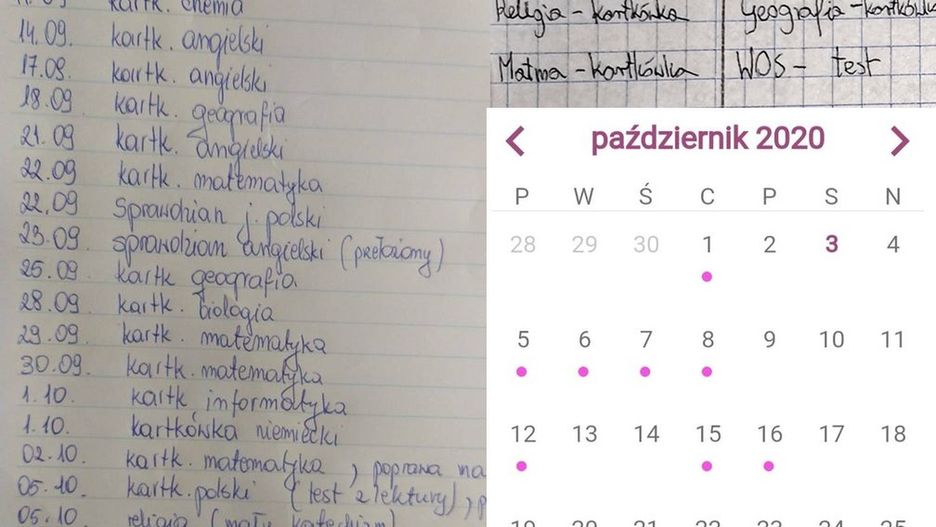 kartk. chemia
14.09. kartk. angielski
17.09. kartk. angielski
18.09 kartk. geografia
21.09 kartk. angielski
22.09 kartk. matematyka
22.09 Sprawdzian j. polski
23.09. sprawdzian angielski (przełożony)
25.09. kartk geografia
28.09 kartk. biologia
29.09 kartk. matematyka
30.09. kartk. matematyka
1.10. kartk. informatyka
1.10. kartkówska niemiecki
02.10. kartk. matematyka, poprawa ma
05.10. kartk. polski (test z lektury), p
05.10. religia (mały katechizm)
Religia - kartkówka Geografia - kartkówka
Matma - kartkówka WOS - test
październik 2020
P W Ś C P S N
28 29 30 1 2 3 4
5 6 7 8 9 10 11
12 13 14 15 16 17 18
19 20 21 22 23 24 25